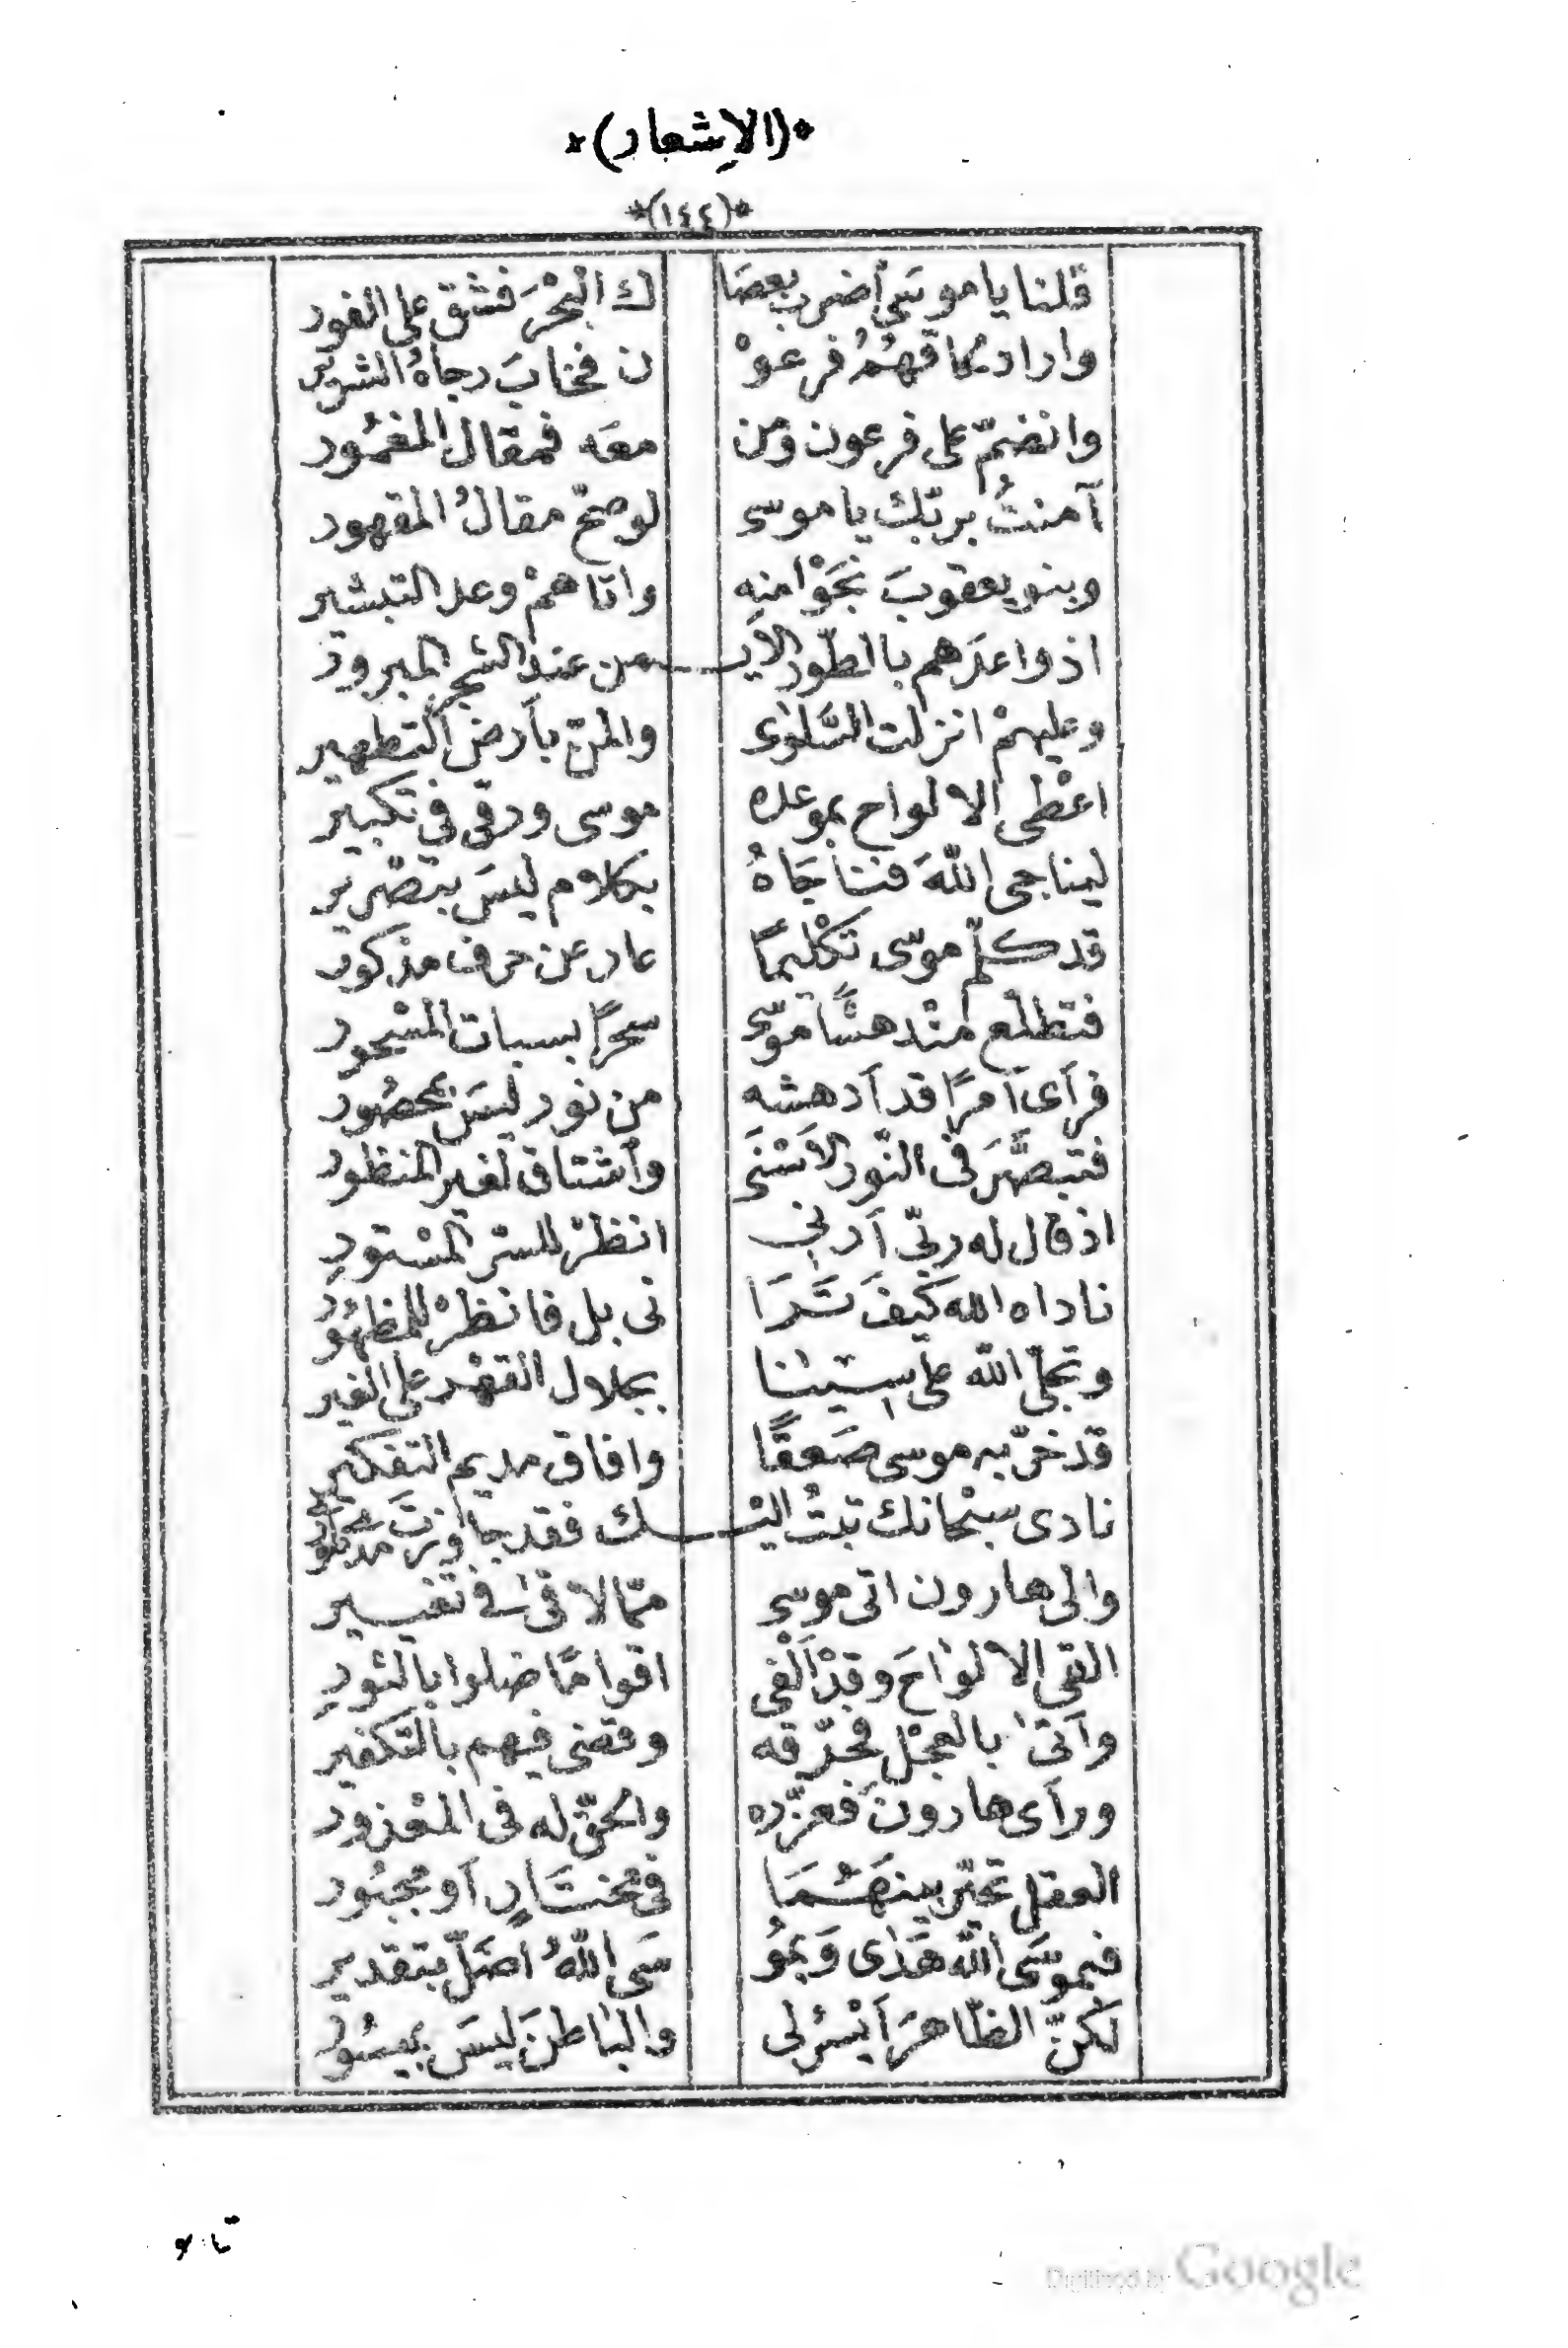 *(الاِشعار)*
*(١٤٤)*
قلنا يا موسَى اضرب بعصَا ك البْحْرَ فشق على الفور
واراد لحاقهُمُ فرعوْ ن فخابَ رجاهُ الشرّير
وانضمّ على فرعون ومن معَه فمقال المغمُور
آمنتُ بربّك يا موسى لو صحّ مقالُ المقهور
وبنو يعقوبَ نجَوْا منه واتاهمْ وعد التبشير
اذ واعدَهم بالطّور الأيـ ـمن عند الشجر المبرور
وعليهمْ انزلت السَّلوٰى والمنّ بأرض التطهير
اعطْى الالواح بموعده موسى ورقى فى تكبير
ليناجى اللهَ فناجَاهُ بكلام ليسَ بتصرير
قد كلّم موسى تكْليمًا عار عن حرف مذكور
فتطلّع منْدهشًا موسى سحرًا بسبات المسْجور
فرأى أمرًا قد أدهشه من نور ليسَ بمحصُور
فتبصَّرَ فى النّور الأسْنَى وأشتاق لغير المنظور
اذ قال له ربّى أرنى انظرْ للسّر المسْتور
ناداه الله كيفَ تَرَا نى بل فانظرْ للمظهُور
وتجلّى الله على سيْنا بجلال القهْر على الغير
قد خرّ به موسى صَعقًا وافاق مديم التفكير
نادى سبْحانك تبتُ اليْـ ـك فقد جاوزتَ
والى هارون اتى موسى ممّا لاقىٰ فى تفسير
القى الالوٰاحَ وقدْ ألْفى اقوامًا ضلوا بالثورِ
وأتىٰ بالعجْل فحرّقه وقضى فيهم بالتكفير
ورأى هارونَ فعزّره والحقّ له فى المعْزور
العقل تحيّر بينَهُمَا فى مختَارٍ أو مجبُور
فبموسَى اللهُ هَدٰى وَبمُو سَى اللهُ اضَلّ بتقدير
لٰكنّ الظّاهرَ أيْسرُ لى والبٰاطنَ ليسَ بميسُور
Digitized by Google